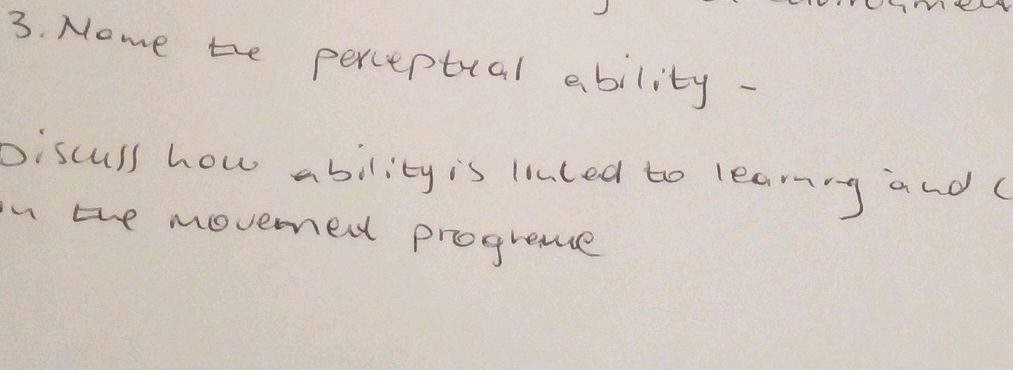 3. Name the perceptual ability -
Discuss how ability is linked to learning and
in the movement programe